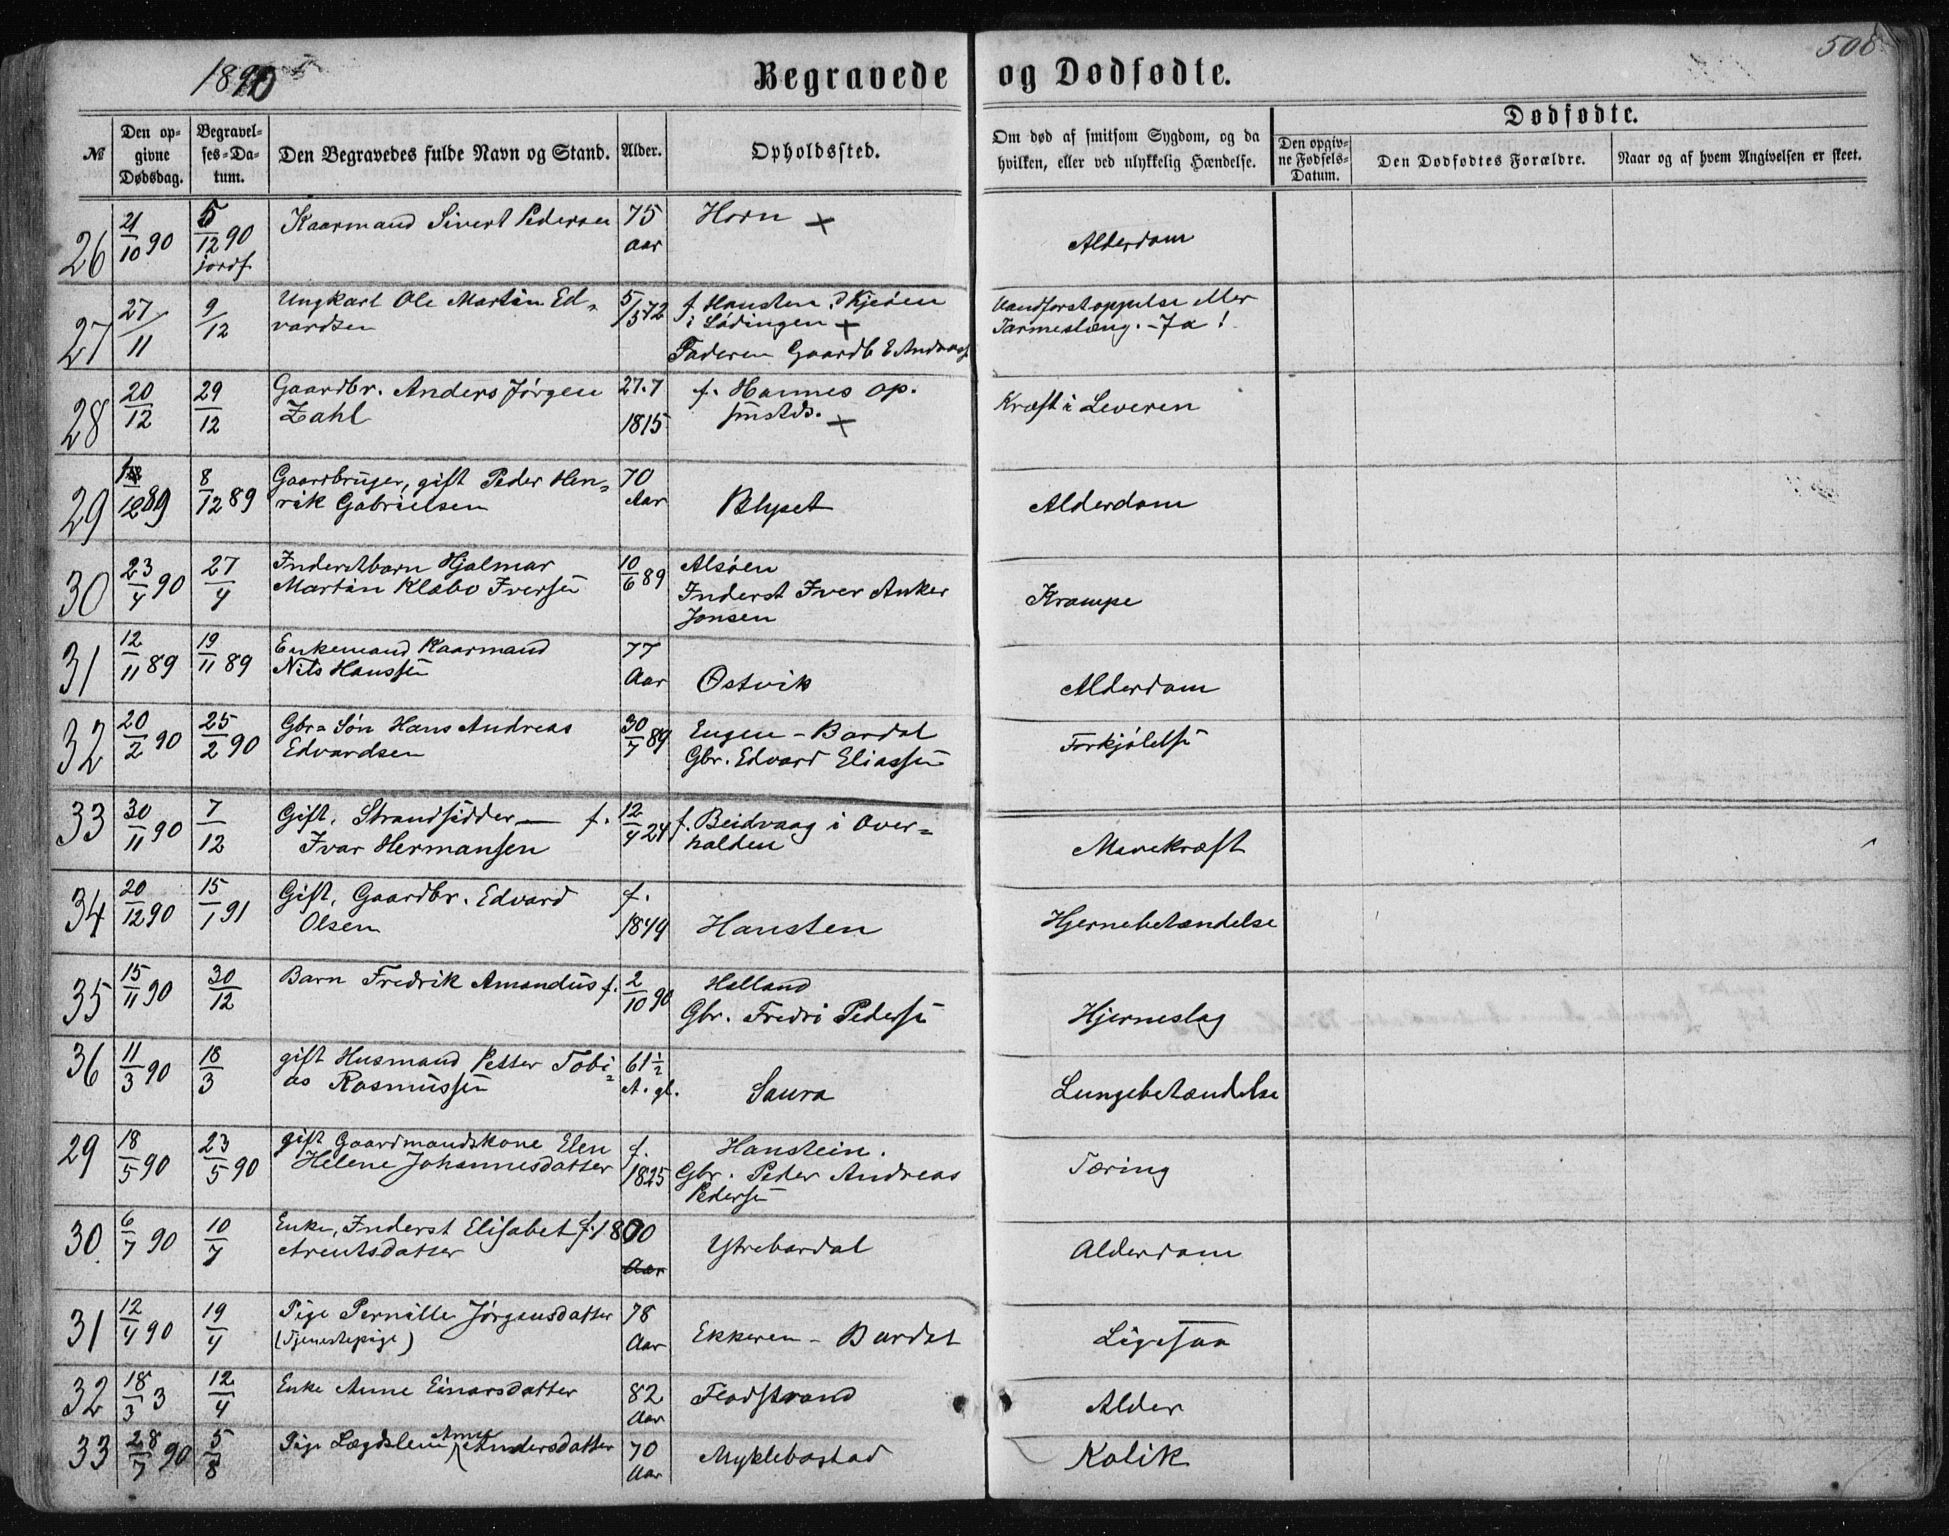 1890
Begravede og Dødfødte.
508
№
Den opgivne Dødsdag.
Begravelses-Datum.
Den Begravedes fulde Navn og Stand.
Alder.
Opholdssted.
Om død af smitsom Sygdom, og da hvilken, eller ved ulykkelig Hændelse.
Dødfødte.
Den opgivne Fødsels-Datum.
Den Dødfødtes Forældre.
Naar og af hvem Angivelsen er skeet.
26 21/10 90 5/12 90 jordf. Kaarmand Sivert Pedersen 75 Aar Horn + Alderdom
27 27/11 9/12 Ungkarl Ole Martin Ed-
vardsen 5/5 72 f. Hansten, Kjeøen
i Lødingen +
Faderen Gaardb E Andreas
Vandforstoppelse eller
Tarmeslæng. - Ja!
28 20/12 29/12 Gaardbr. Anders Jørgen
Zahl 27.7 1815 f. Hannes Op.
+ Kræft i Leveren
29 12 89 8/12 89 Gaardbruger, gift Peder Hen-
rik Gabrielsen 70 Aar Blyset Alderdom
30 23/4 90 27/4 Inderstbarn Hjalmar
Martin Klæbo Iversen 10/6 89 Alsøen
Inderst Iver Anker
Jonsen Krampe
31 12/11 89 19/11 89 Enkemand Kaarmand
Nils Hanssen 77 Aar Østvik Alderdom
32 20/2 90 25/2 90 Gbr. Søn Hans Andreas
Edvardsen 30/7 89 Engen - Bardal
Gbr. Edvard Eliassen Forkjølelse
33 30/11 90 7/12 Gift, Strandsidder — f. 12/4 24 f. Beidvaag i Over-
Ivar Hermansen halden Mavekræft
34 20/12 90 15/1 91 Gift, Gaardbr. Edvard
Olsen f. 1849 Hansten Hjernebetændelse
35 15/11 90 30/12 Barn Fredrik Amandus f. 2/10 90 Halland
Gbr. Fredri Pedersen Hjerneslag
36 11/3 90 18/3 gift Husmand Petter Tobi-
as Rasmussen 61 1/2 A. gl. Saura Lungebetændelse
29 18/5 90 23/5 90 gift Gaardmandskone Elen
Helene Johannesdatter f. 1825 Hanstein.
Gbr. Peder Andreas
Pedersen Tæring
30. 6/7 90 10/7 Enke, Inderst Elisabet f. 1800
Arentsdatter Aar Ytrebardal Alderdom
31 12/4 90 19/4 Pige Pernille Jørgensdatter
(Tjenestepige) 78 Aar Ekkeren - Bardal Ligesaa
32 18/3 3 12/4 Enke Anne Einarsdatter 82 Aar Flodstrand Alder
33 28/7 90 5/8 Pige Lægdslem Anne Andersdatter 70 Aar Myklebostad Kolik